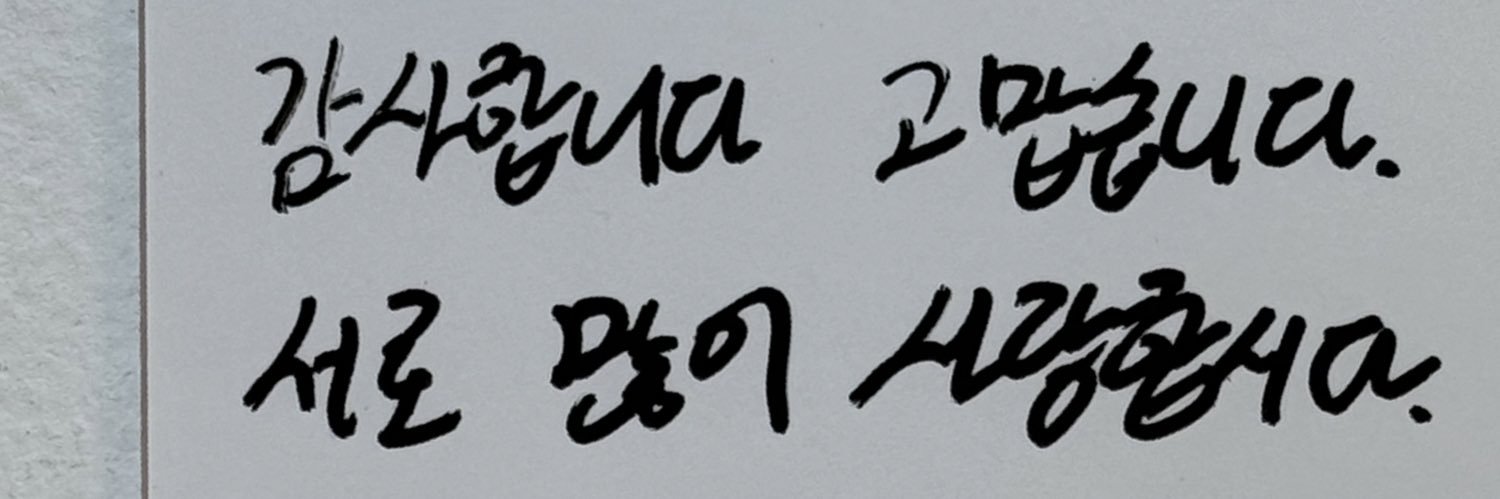 감사합니다 고맙습니다.
서로 많이 사랑합시다.